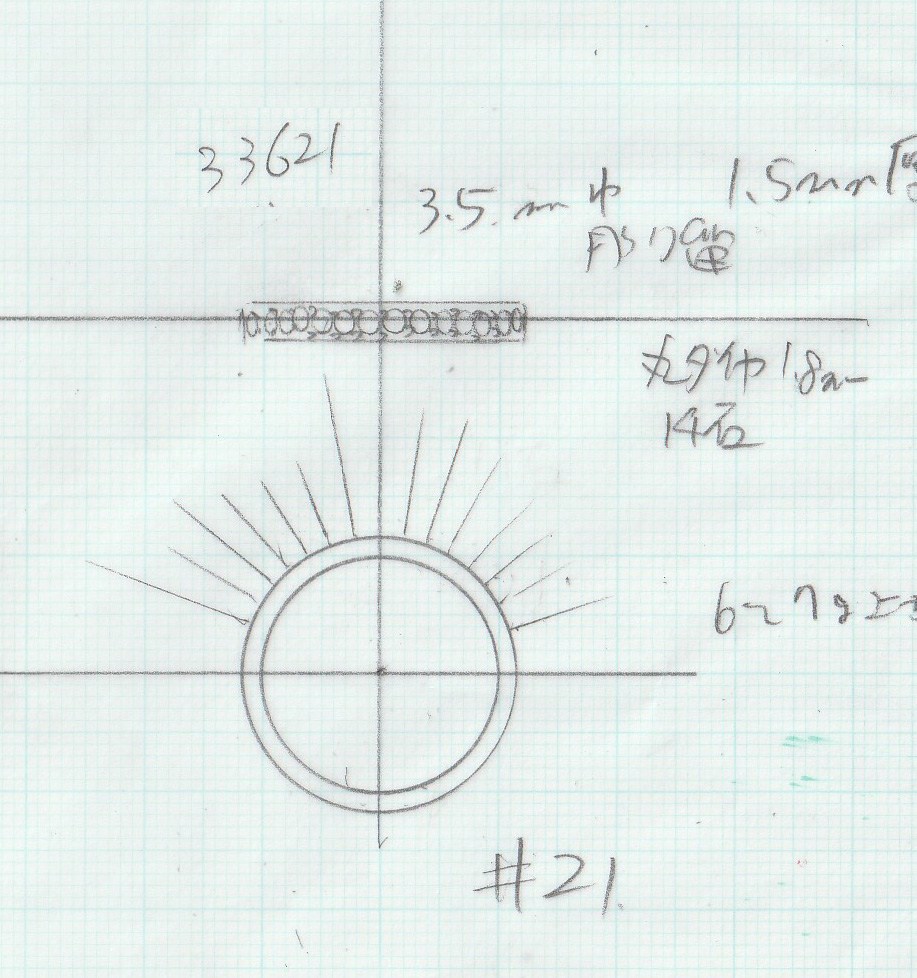 33621
3.5mm巾 1.5mm厚
彫り留
丸ダイヤ 1.8mm
14石
6〜7g
#21